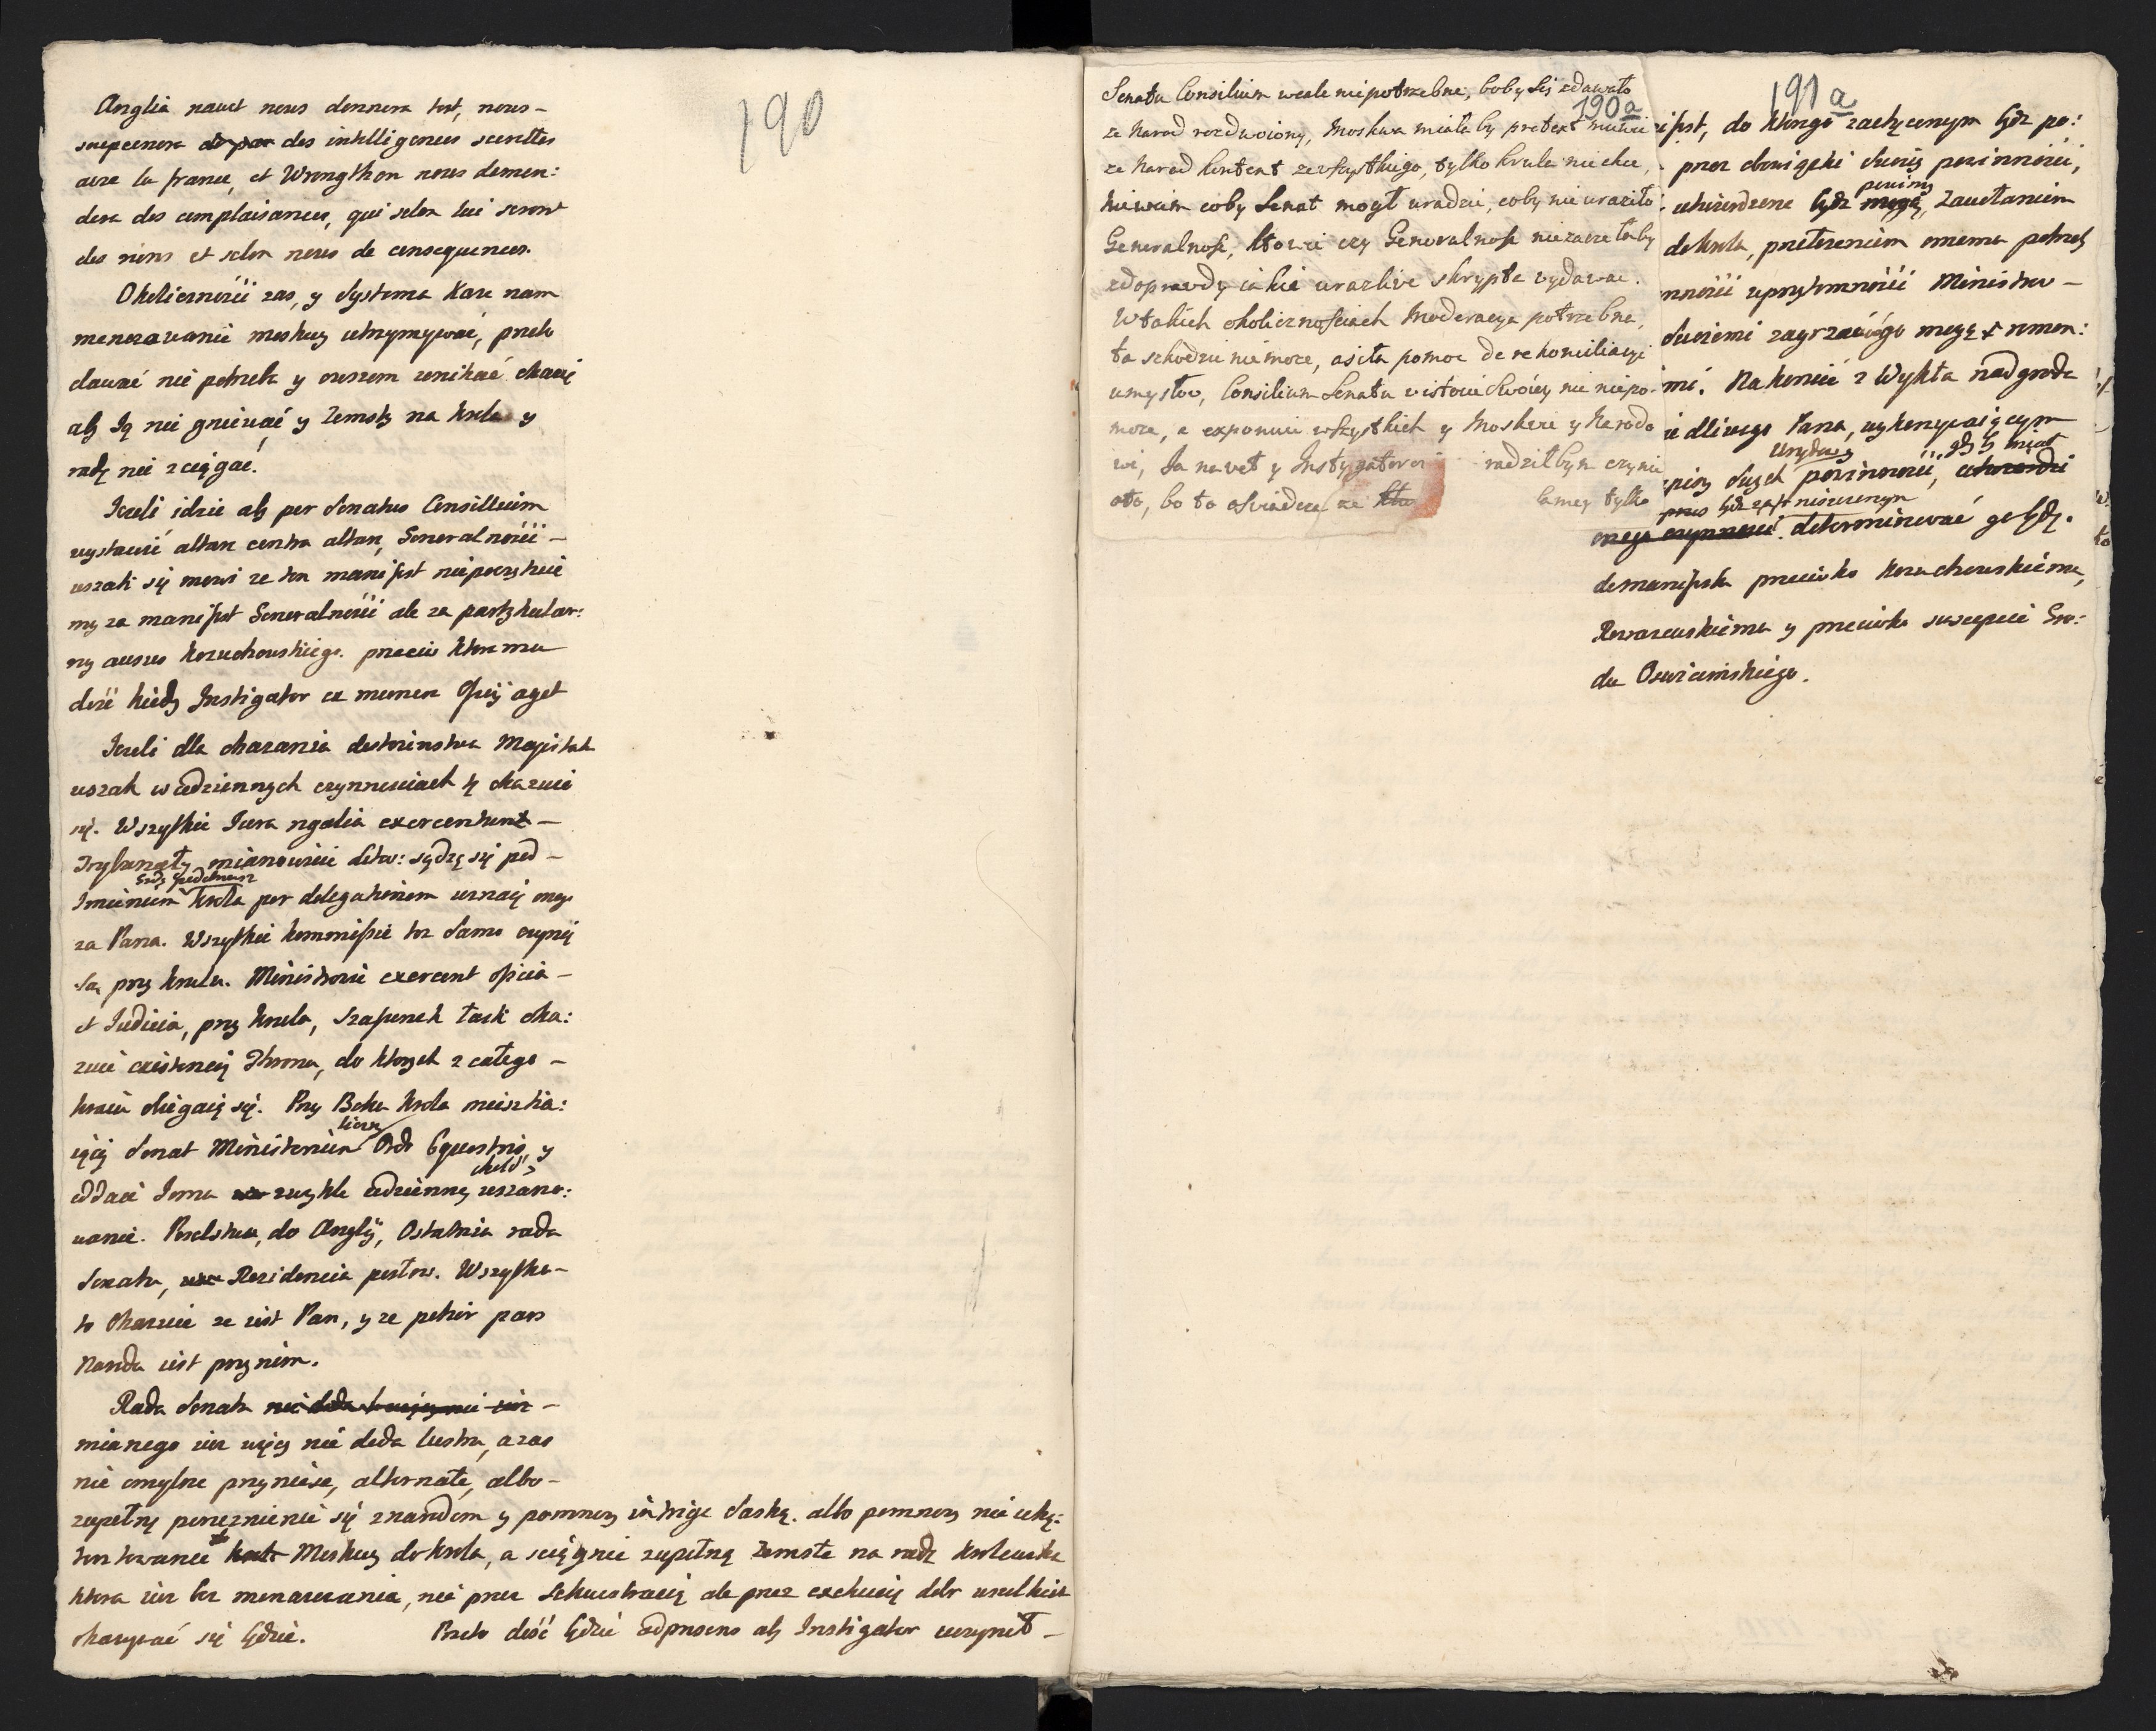 190
Anglia nawet nous donnera tort, nous
soupconera des intelligences secrettes
avec la france, et Wrougthon nous demen:
dera des complaisances, qui selon lui seront
des riens et selon nous de consequences.
Okolicznosci zas, y Systema Kaze nam
menazowanie moskwy utrzymywać, preto
dawać nie potrzeba y owszem unikać okazij
aby Ją nie gniewać y Zemsty na krola y
radę nie sciągać.
Jezeli idzie aby per Senatus Consillium
wystawić altare contra altare, Generalności
wszak się mowi ze ten manifest nie poczytuie
my za manifest Generalności ale za partykular:
ny ausus Kozuchowskiego. przeciw ktoremu
dość kiedy Instigator ex munere Officij aget
Jezeli dla okazania dostoienstwa Majestatu
wszak w codziennych czynnosciach te okazuie
się. Wszystkie Jura regalia exercentur
Trybunały mianowicie Litew: sądzą się pod
Imieniem Krola per delegationem uznaią onego
za Pana. Wszystkie kommissie toz samo czynią
Są przy krolu. Ministrowie exercent officia
et Judicia, przy krolu, Szafunek łask oka:
zuie existencij Thronu, do ktorych z całego
kraiu ubiegaią się. Przy Boku krola mieszka:
iący Senat Ministerium Ordo Equestris, y
oddaie Jemu zwykłe codzienne uszano:
wanie. Poselstwo, do Anglij, Ostatnia rada
Senatu, Rezidencia posłow. Wszystko
to Okazuie ze iest Pan, y ze potior pars
Narodu iest przy nim.
Rada Senatu
mianego iuz więcy nie doda lustru, a zas
nie omylnie przyniesie, alternate, albo
zupełne poroznienie się z narodem y pomnozy intrige Saską. albo pomnozy nie ukę:
tentowanie Moskwy do krola, a sciągnie zupełną Zemste na radę krolewską
ktora iuz bez menazowania, nie przez Sekwestracią ale przez exekucią dobr wszelkich
okazywać się będzie. Preto dość będzie Odproszono aby Instigator uczynił
190a
Senatu Consilium wcale niepotrzebne, boby się zdawało
ze Narod rozdwoiony, Moskwa miałaby pretext mowić
ze Narod kontent ze wszystkiego, tylko krola nie chce,
Niewiem coby Senat mogł uradzic, coby nie uraziło
Generalnosc, ktowi czy Generalnosc niezaczełaby
zdoprawdy iakie urazliwe skrypta wydawac.
W takich okolicznosciach Moderacya potrzebna,
ta szkodzic nie moze, a siła pomoc do rekonciliacyi
umysłow, Consilium Senatu w istocie swoiey nic nie po:
moze, a exponuie wszystkich y Moskwie y Narodo
wi, Ja nawet y Instygatorowi radziłbym czynic
oto, bo to oswiadczy ze samey tylko
191a
ifest, do ktorego zachęconym bydz po:
przez obowiązki swoiey powinności,
utwierdzone bydz powinny, Zawołaniem
do krola, przełozeniem onemu potrzeby
nności z przytomności Ministrow
swoiemi zagrzaćiego mogą remon:
mi. Na koniec z Wykła nadgroda
dliwego Pana, wykonywaiącym
Urzędu y gdyby miał
piey Swych powinności,
przez bydz zastraszonym
determinować go będzie
do manifestu przeciwko Kozuchowskiemu,
Rewazewskiemu y przeciwko suscepcie Gro:
du Oswiecimskiego.